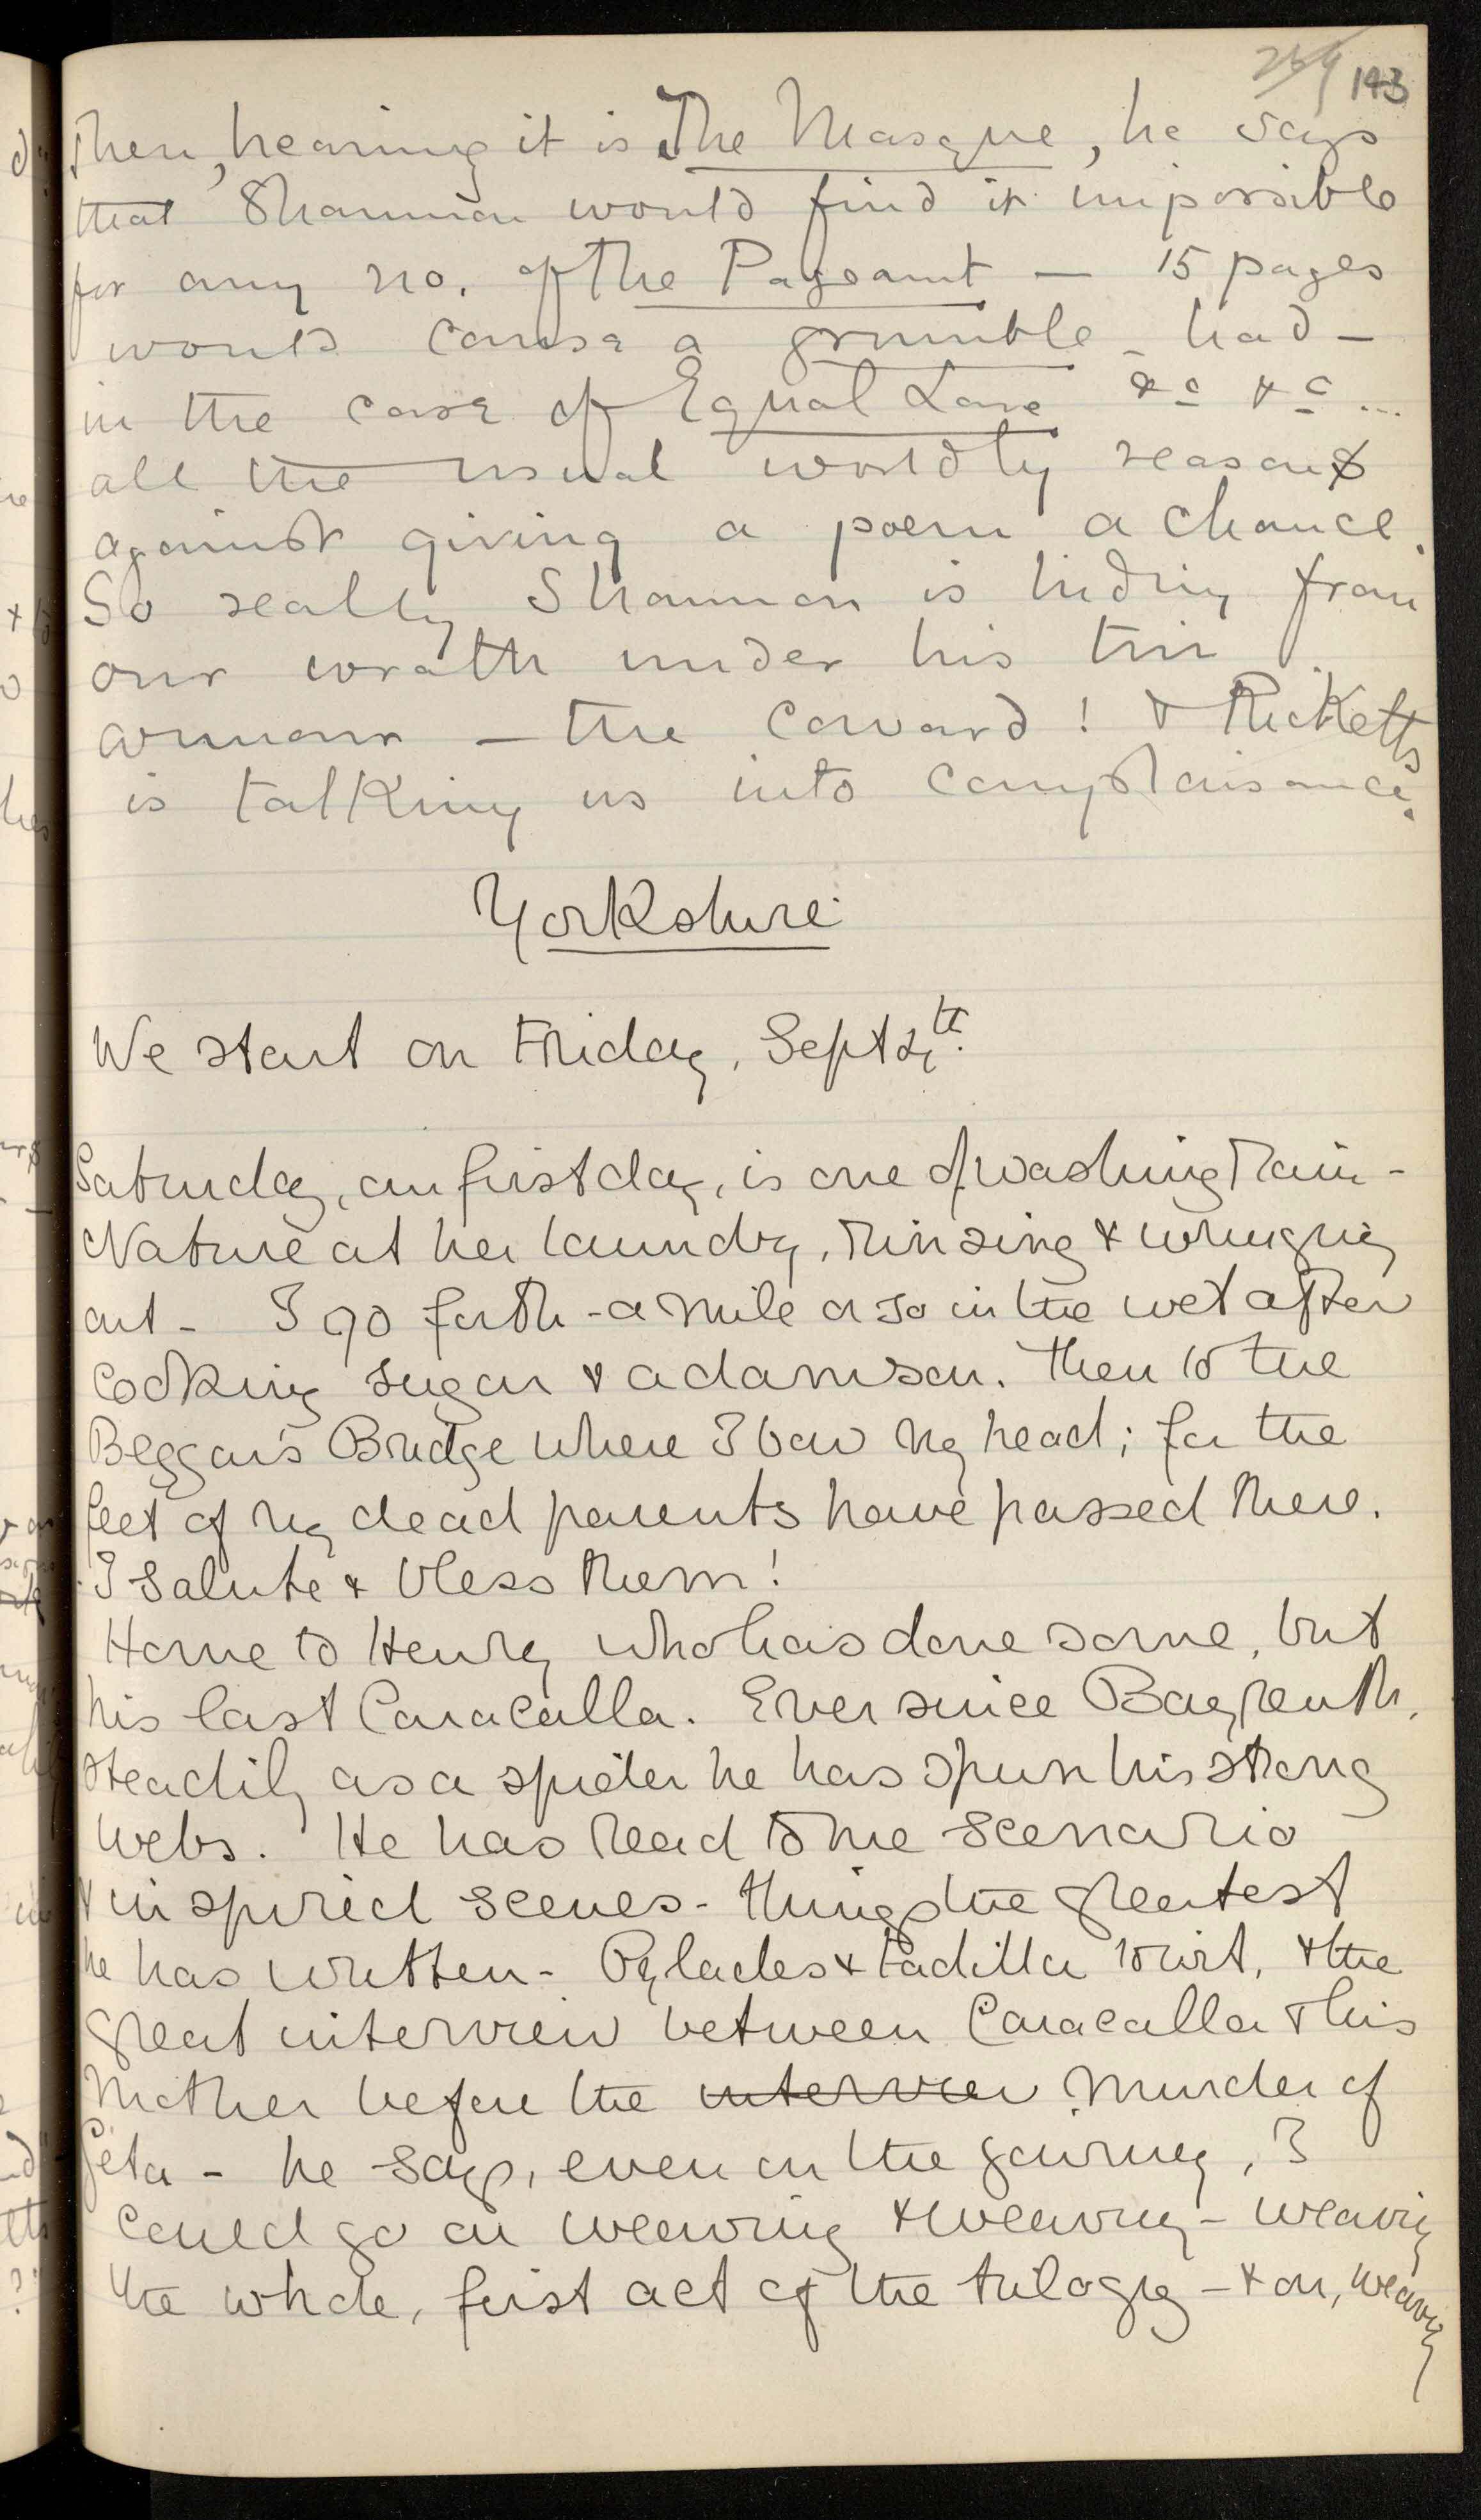 259 143
Then, hearing it is The Masque, he says
that Shannon would find it impossible
for any no. of The Pageant — 15 pages
would cause a grumble – had –
in the case of Equal Love &c &c ...
all the usual worldly reasons
against giving a poem a chance.
So really Shannon is hiding from
our wrath under his tin
armour – the coward! & Ricketts
is talking us into complaisance.
Yorkshire
We start on Friday, Sept 4th.
Saturday, our first day, is one of washing rain -
Nature at her laundry, rinsing & wringing
out - I go forth - a mile or so in the wet after
cooking sugar & a damson. Then to the
Beggar's Bridge where I bow my head; for the
feet of my dead parents have passed there.
I salute & bless them!
Home to Henry who has done some, but
his last Caracalla. Ever since Bayreuth,
steadily as a spider he has spun his strong
webs. He has read to me scenario
& inspired scenes - things the greatest
he has written - Pylades & Fadilla, & the
great interview between Caracalla & his
Mother before the interview murder of
Geta - he says, even on the journey, I
could go on weaving & weaving - weaving
the whole, first act of the trilogy - & on, weaving